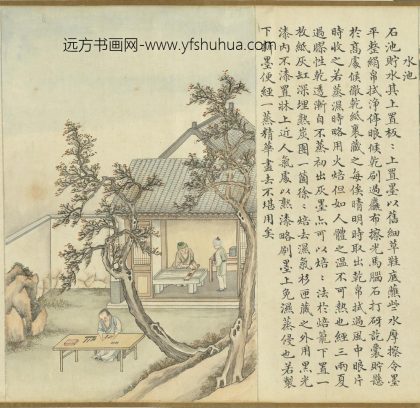 远方书画网-www.yfshuhua.com
水池
石池貯水其上置板板上置墨以舊細草鞋底蘸些水摩擦令墨
平整絹帛拭淨停眼候乾刷過麤布擦光馬腦石打砑訖囊貯懸
於高處候徹乾紙裹藏之每候晴明時取出乾帛拭過風中眼片
時收之若蒸濕時略用火焙但如人體之溫不可熱也經三兩夏
過膠性乾透漸自不蒸初出灰墨亦可以焙法於焙籠下置一
故紙灰缸深埋熟炭團一箇徐徐焙去濕氣杉匣藏之外用黑光
漆內不漆置牀上近人氣處以熟漆略刷墨上免濕蒸侵也若製
下墨便經一蒸精華盡去不堪用矣